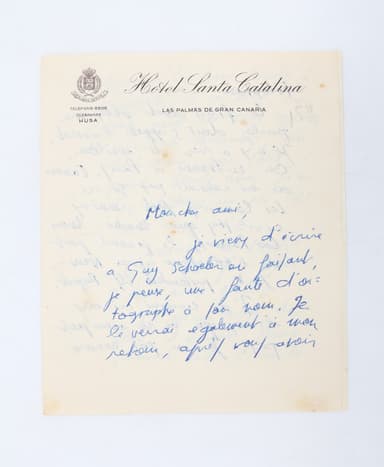 Hotel Santa Catalina
LAS PALMAS DE GRAN CANARIA
TELEFONO
TELEGRAMAS
HUSA
Mon cher ami,
je viens d'écrire
à Guy Schoeler en faisant,
je pense, une faute d'or-
tographe à son nom. Je
le verrai également à mon
retour, après vous avoir